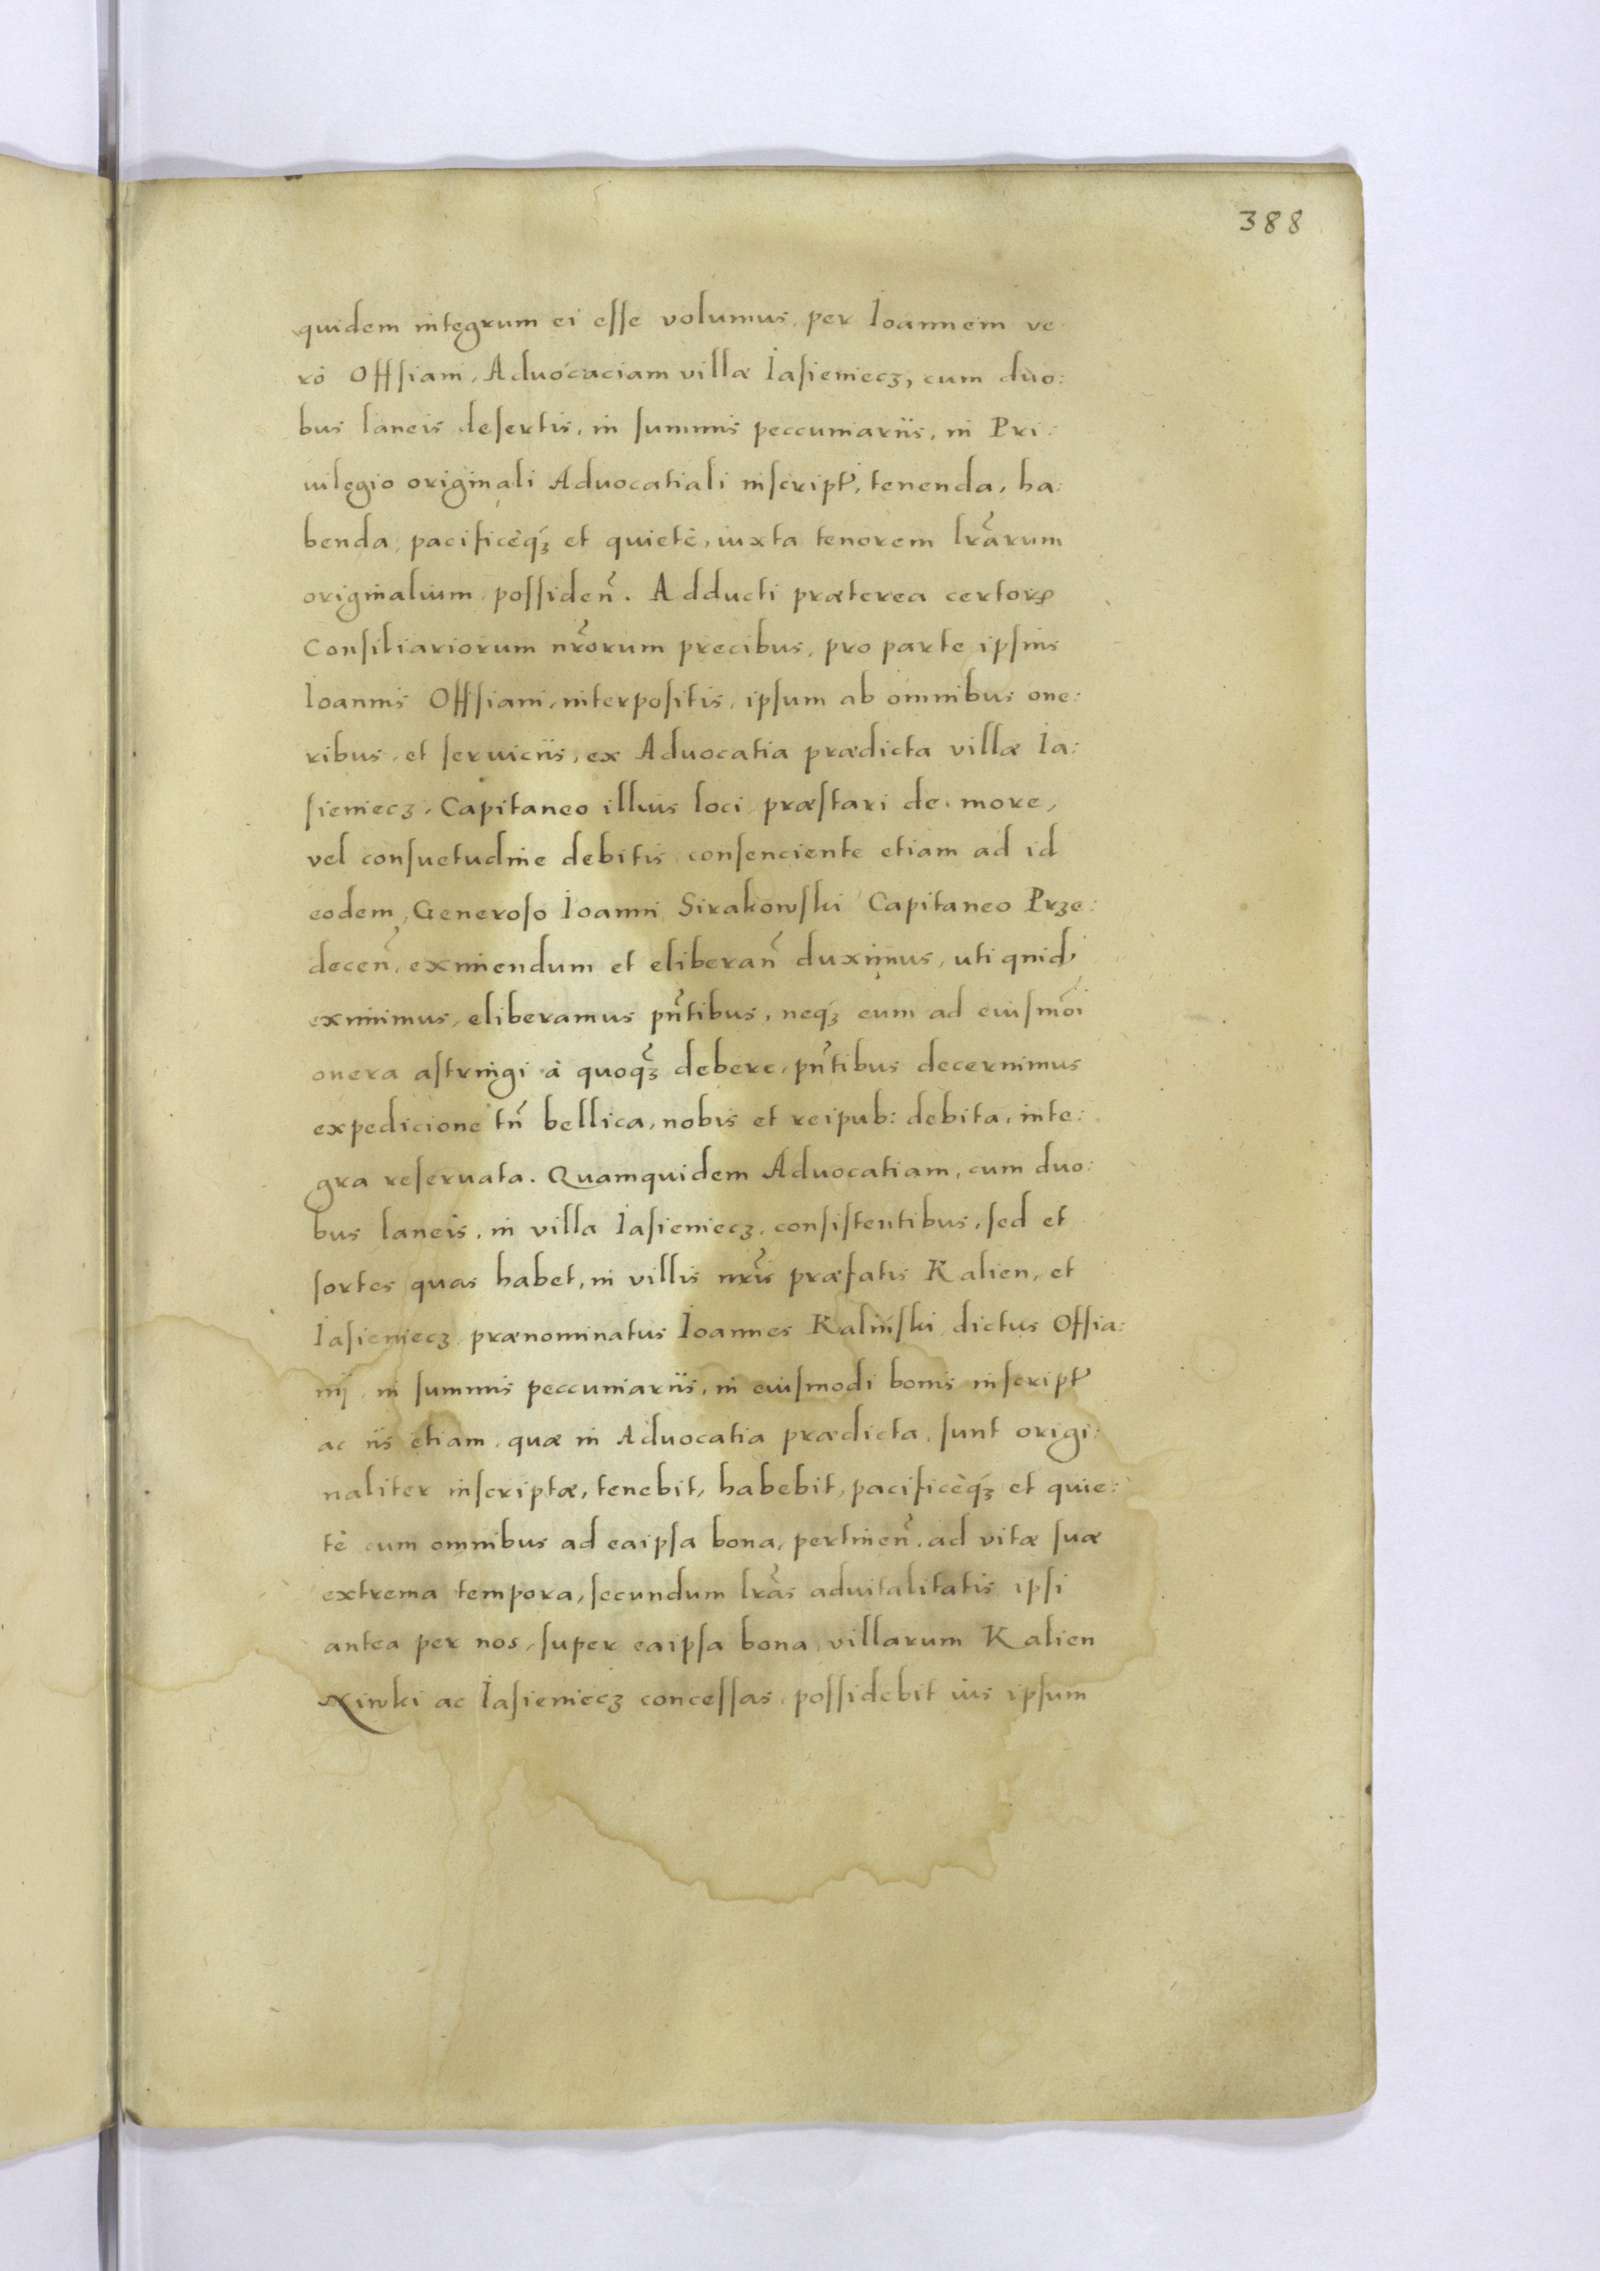 388
quidem integrum ei esse volumus, per Ioannem ve
rò Offsiani, Aduocaciam villæ Iasieniecz, cum duo:
bus laneis desertis, in summis peccuniariis, in Pri:
uilegio originali Aduocatiali inscript͛, tenenda, ha:
benda, pacificèq́ꝫ et quietè, iuxta tenorem lr̃arum
originalium possiden̄. Adducti præterea certorꝝ
Consiliariorum nr̃orum precibus, pro parte ipsius
Ioannis Offsiani, interpositis, ipsum ab omnibus one:
ribus, et seruiciis, ex Aduocatia prædicta villæ Ia:
sieniecz, Capitaneo illius loci præstari de more,
vel consuetudine debitis consenciente etiam ad id
eodem, Generoso Ioanni Sirakowski Capitaneo Prze:
decen̄, eximendum et eliberan̄ duximus, uti quidẽ
eximimus, eliberamus pn̄tibus, neq́ꝫ eum ad eiusmõi
onera astringi à quoq̃ꝫ debere, pn̄tibus decernimus
expedicione tn̄ bellica, nobis et reipub: debita, inte:
gra reseruata. Quamquidem Aduocatiam, cum duo:
bus laneis, in villa Iasieniecz, consistentibus, sed et
sortes quas habet, in villis nr̃is præfatis Kalien, et
Iasieniecz prænominatus Ioannes Kalinski dictus Offsia:
nij, in summis peccuniariis, in eiusmodi bonis inscript͛
ac iis etiam, quæ in Aduocatia prædicta, sunt origi:
naliter inscriptæ, tenebit, habebit, pacificèq́ꝫ et quie:
tè cum omnibus ad eaipsa bona, pertinen̄, ad vitæ suæ
extrema tempora, secundum lr̃as aduitalitatis ipsi
antea per nos, super eaipsa bona villarum Kalien
Xiwki ac Iasieniecz concessas, possidebit ius ipsum